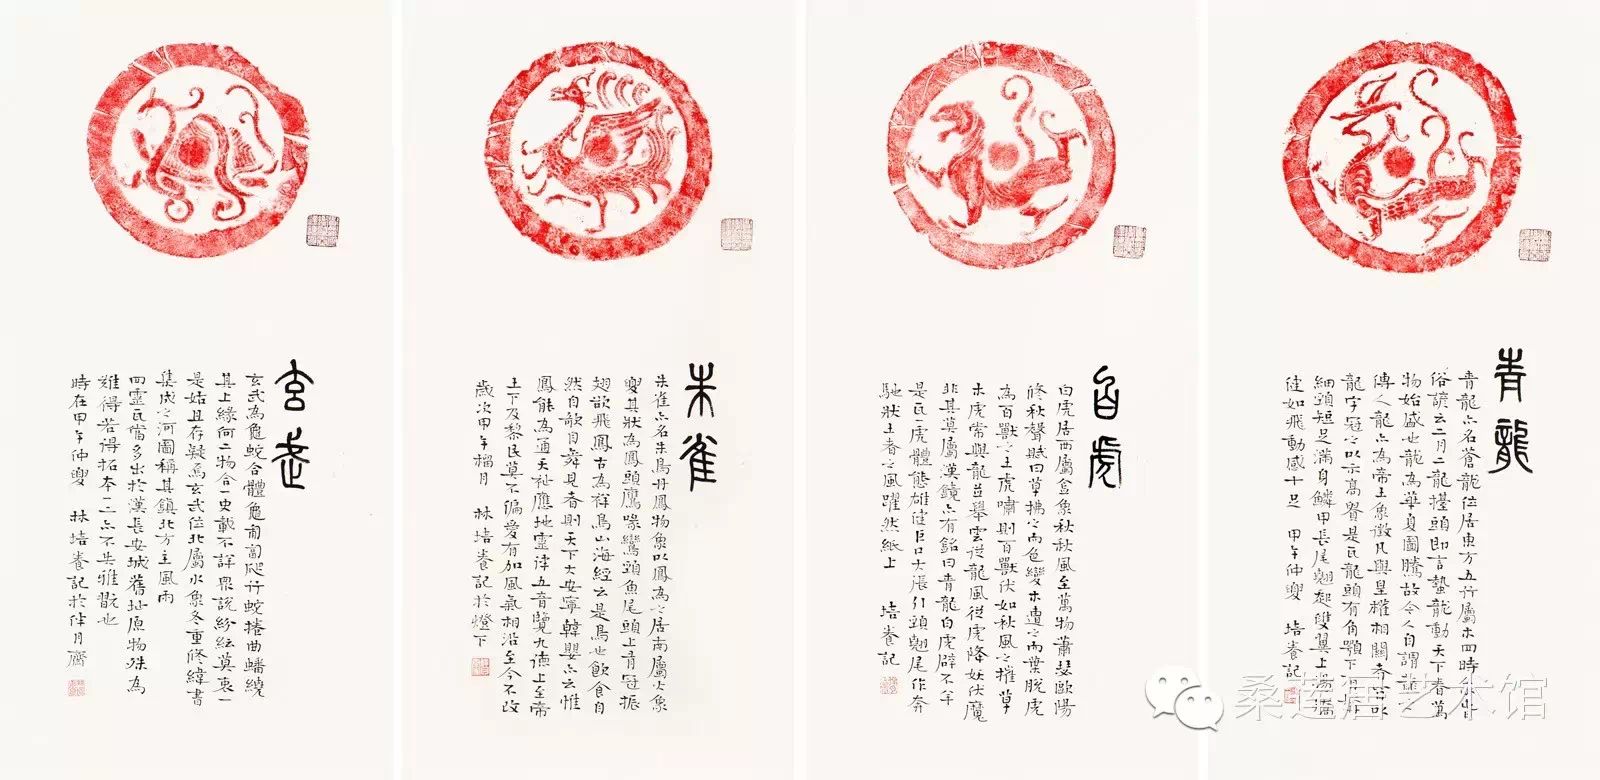 青龍
青龍亦名蒼龍位居東方五行屬木四時
俗諺云二月二龍擡頭即言蟄龍動天下春萬
物始盛也龍為華夏圖騰故今人自謂
傳人龍亦為帝王象徵凡與皇權相關者皆以
龍字冠之以示高貴是瓦龍頭有角顎下有
細頸短足滿身鱗甲長尾翹起雙翼上揚矯
健如飛動感十足 甲午仲夏 培養記
白虎
白虎居西屬金象秋秋風至萬物蕭瑟歐陽
修秋聲賦曰草拂之而色變木遭之而葉脫虎
為百獸之王虎嘯則百獸伏如秋風之摧草
木虎常與龍並舉雲從龍風從虎降妖伏魔
非其莫屬漢鏡亦有銘曰青龍白虎辟不羊
是瓦虎體態雄健巨口大張引頸翹尾作奔
馳狀王者之風躍然紙上 培養記
朱雀
朱雀亦名朱鳥丹鳳物象以鳳為之居南屬火象
夏其狀為鳳頭鷹喙鸞頸魚尾頭上有冠振
翅欲飛鳳古為祥鳥山海經云是鳥也飲食自
然自歌自舞見者則天下大安寧韓嬰亦云惟
鳳能為通天祉應地靈律五音覽九德上至帝
王下及黎民莫不偏愛有加風氣相沿至今不改
歲次甲午榴月 林培養記於燈下
玄武
玄武為龜蛇合體龜匍匐爬行蛇捲曲蟠繞
其上緣何二物合一史載不詳眾說紛紜莫衷一
是姑且存疑焉玄武位北屬水象冬重修緯書
集成之河圖稱其鎮北方主風雨
四靈瓦當多出於漢長安城舊址原物殊為
難得若得拓本一二亦不失雅翫也
時在甲午仲夏 林培養記於伴月齋
桑莲居艺术馆